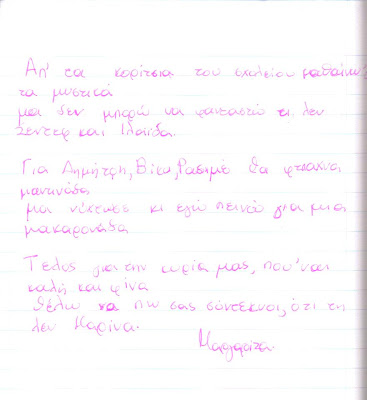 Απ' τα κορίτσια του σχολείου μαθαίνω
τα μυστικά
μα δεν μπορώ να φανταστώ τι λεν
Ξέντερ και Ιλαΐδα.
Για Δημήτρη, Βίκυ, Ρασιμό θα φτιαχνα
μαντινάδα
μα νύχτωσε κι εγώ πεινώ για μια
μακαρονάδα
Τέλος για την κυρία μας, που 'ναι
καλή και φίνα
Θέλω να πω σας σύντεκνοι, ότι τη
λεν Μαρίνα.
Μαργαρίτα